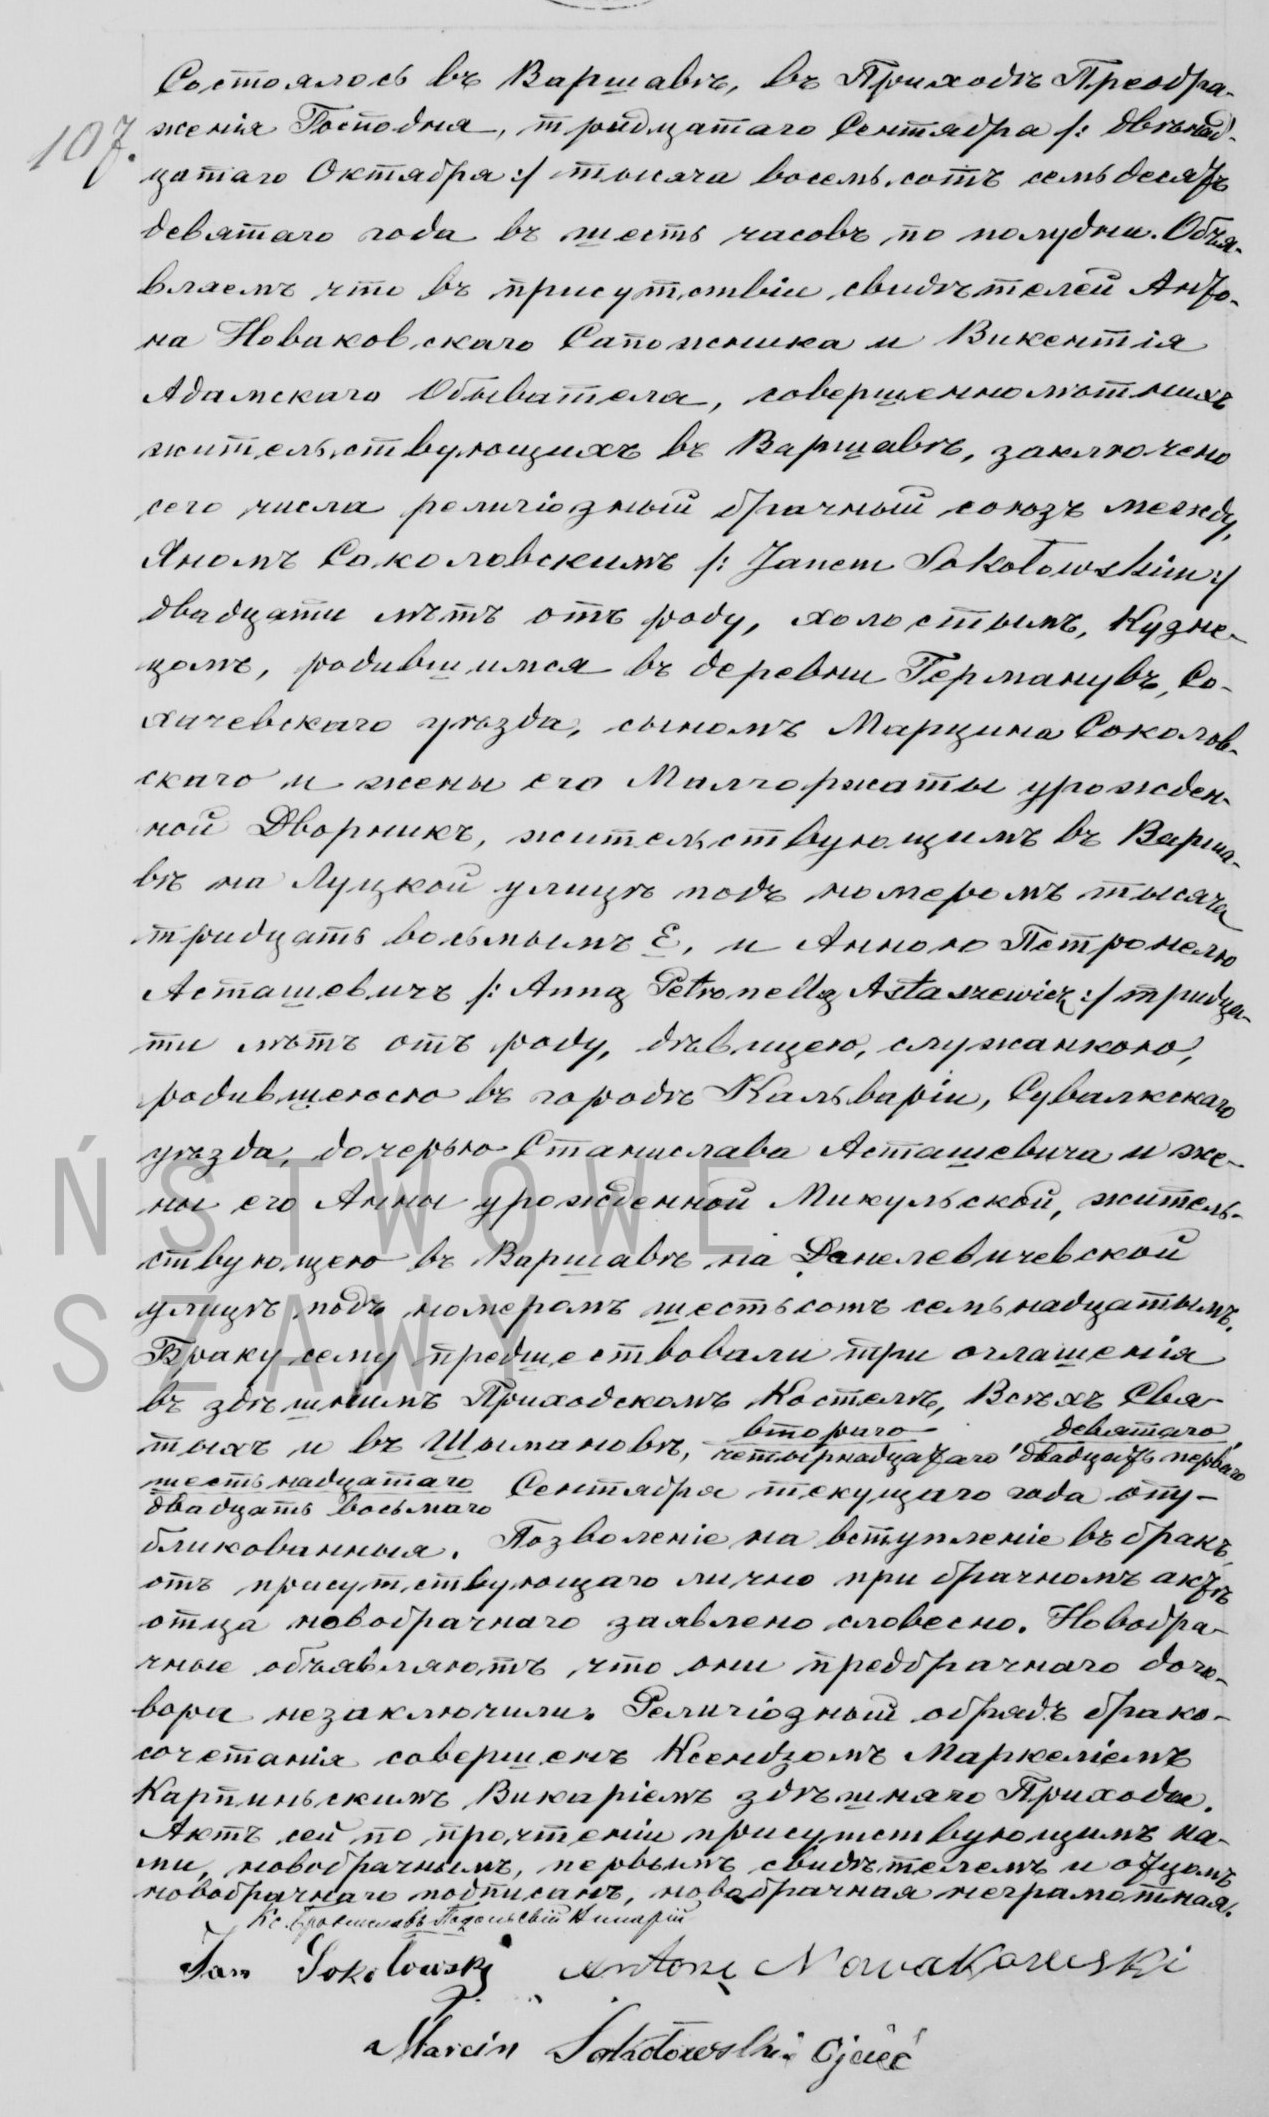 107.
Состоялось въ Варшавѣ, въ Приходѣ Преобра-
женія Господня, тридцатаго Сентября /: двѣнад-
цатаго Октября :/ тысяча восемьсотъ семьдесятъ
девятаго года въ шесть часовъ по полудни. Объя-
вляемъ что въ присутствіи свидѣтелей Анто-
на Новаковскаго Сапожника и Викентія
Адамскаго Обывателя, совершеннолѣтнихъ
жительствующихъ въ Варшавѣ, заключено
сего числа религіозный брачный союзъ между,
Яномъ Соколовскимъ /: Janem Sokołowskim :/
двадцати лѣтъ отъ роду, холостымъ, Кузне-
цомъ, родившимся въ деревни Германувъ, Со-
хачевскаго уѣзда, сыномъ Марцина Соколов-
скаго и жены его Малгоржаты урожден-
ной Дворникъ, жительствующимъ въ Варша-
вѣ на Луцкой улицѣ подъ номеромъ тысяча
тридцать восьмымъ Е, и Анною Петронелю
Асташевичъ /: Anną Petronellą Astaszewicz :/ тридца-
ти лѣтъ отъ роду, дѣвицею, служанкою,
родившеюсю въ городѣ Кальваріи, Сувалкскаго
уѣзда, дочерью Станислава Асташевича и же-
ны его Анны урожденной Микульской, житель-
ствующею въ Варшавѣ на Данелевичевской
улицѣ подъ номеромъ шестьсотъ семьнадцатымъ.
Браку сему предшествовали три оглашенія
въ здѣшнимъ Приходскомъ Костелѣ, Всѣхъ Свя-
тыхъ и въ Шымановѣ, второго девятаго
четырнадцатаго двадцать перваго
шестьнадцатаго Сентября текущаго года опу-
двадцать восьмаго
бликованныя. Позволеніе на вступленіе въ бракъ
отъ присутствующаго лично при брачномъ актѣ
отца новобрачнаго заявлено словесно. Новобра-
чные объявляютъ что они предбрачнаго дого-
вора незаключили. Религіозный обрядъ брако-
сочетанія совершенъ Ксендзомъ Маркеліемъ
Карпиньскимъ Викаріемъ здѣшняго Прихода.
Актъ сей по прочтеніи присутствующимъ на-
ми, новобрачнымъ, первымъ свидѣтелемъ и отцомъ
новобрачнаго подписанъ, новобрачная неграмотная.
Кс. Брониславъ
Jan Sokołowski Antoni Nowakowski
Marcin Sokołowski Ojciec
AŃSTWOWE
ASZAWY